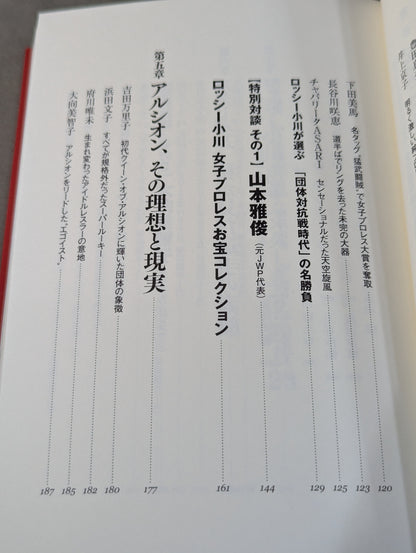 下田美馬 名タッグ「猛武闘賊」で女子プロレス大賞を奪取 120
長谷川咲恵 道半ばでリングを去った未完の大器 123
チャパリータASARI センセーショナルだった天空旋風 125
ロッシー小川が選ぶ 「団体対抗戦時代」の名勝負 129
【特別対談 その1】 山本雅俊(元JWP代表) 144
ロッシー小川 女子プロレスお宝コレクション 161
第五章 アルシオン、その理想と現実 177
吉田万里子 初代クイーン・オブ・アルシオンに輝いた団体の象徴 180
浜田文子 すべてが規格外だったスーパールーキー 182
府川唯未 生まれ変わったアイドルレスラーの意地 185
大向美智子 アルシオンをリードした“エゴイスト” 187